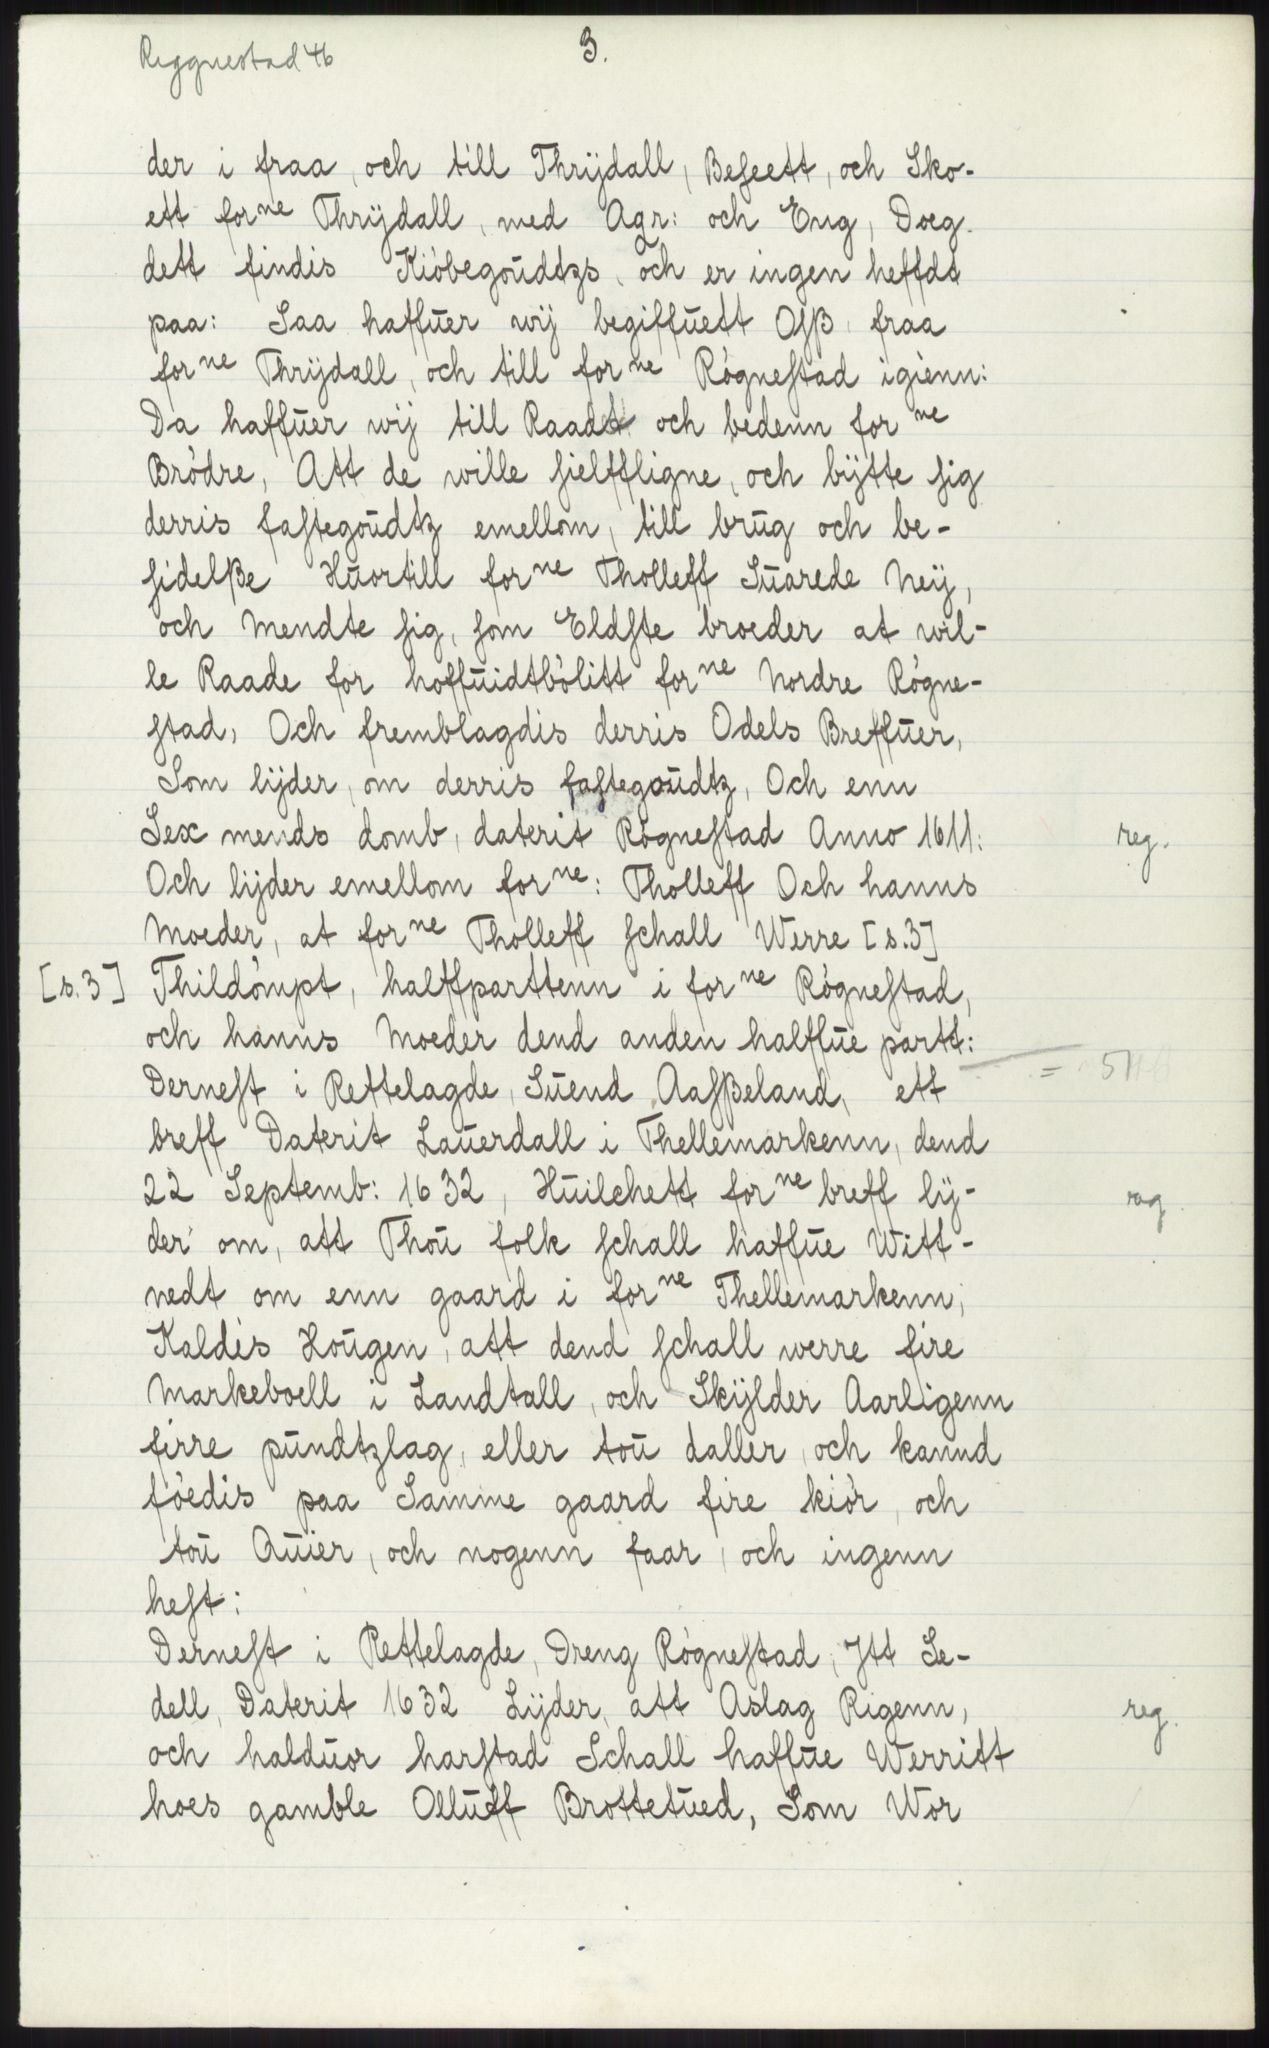 Ryggnestad 46
3.
der i fraa, och till Thrijdall, Beseett, och Sko-
ett forne Thrijdall, med Agr: och Eng, Doeg.
dett findis Kiöbegoudtzs, och er ingen heffdt
paa: Saa haffuer wij begiffuett Osß, fraa
forne Thrijdall, och till forne Rögnestad igienn:
Da haffuer wij till Raadt och bedenn forne
Brödre, Att de wille sielffligne, och bÿtte sig
derris fastegoudtz emellom, till brug och be-
sidelße Huortill forne Tholleff Suarede Neij,
och Mendte sig, som Eldste broeder at wil-
le Raade for hoffuidtbölitt forne Nordre Rögne-
stad, Och fremblagdis derris Odels Breffuer,
Som lijder, om derris fastegoudtz, Och enn
Sex mends domb, daterit Rögnestad Anno 1611: reg.
Och lijder emellom forne: Tholleff Och hanns
Moeder, at forne Tholleff schall Werre [s.3]
[s.3] Thildömpt, halffparttenn i forne Rögnestad,
och hanns Moeder dend anden halffue partt:
Dernest i Rettelagde, Suend Aasßeland, ett
breff Daterit Lauerdall i Thellemarkenn, dend
22 Septemb: 1632, Huilchett forne breff lij- reg.
der om, att Thou folk schall haffue Witt-
nedt om enn gaard i forne Thellemarkenn,
Kaldis Hougen, att dend schall werre fire
Markeboell i Landtall, och Skÿlder Aarligenn
firre pundtzlag, eller tou daller, och kannd
föedis paa Samme gaard fire kiör, och
tou Quier, och nogenn faar, och ingenn
hest:
Dernest i Rettelagde, Dreng Rögnestad, Itt Se-
dell, Daterit 1632 Lijder, att Aslag Rigenn, reg.
och halduor harstad Schall haffue Werritt
hoes gamble Olluff Brottetued, Som Wor